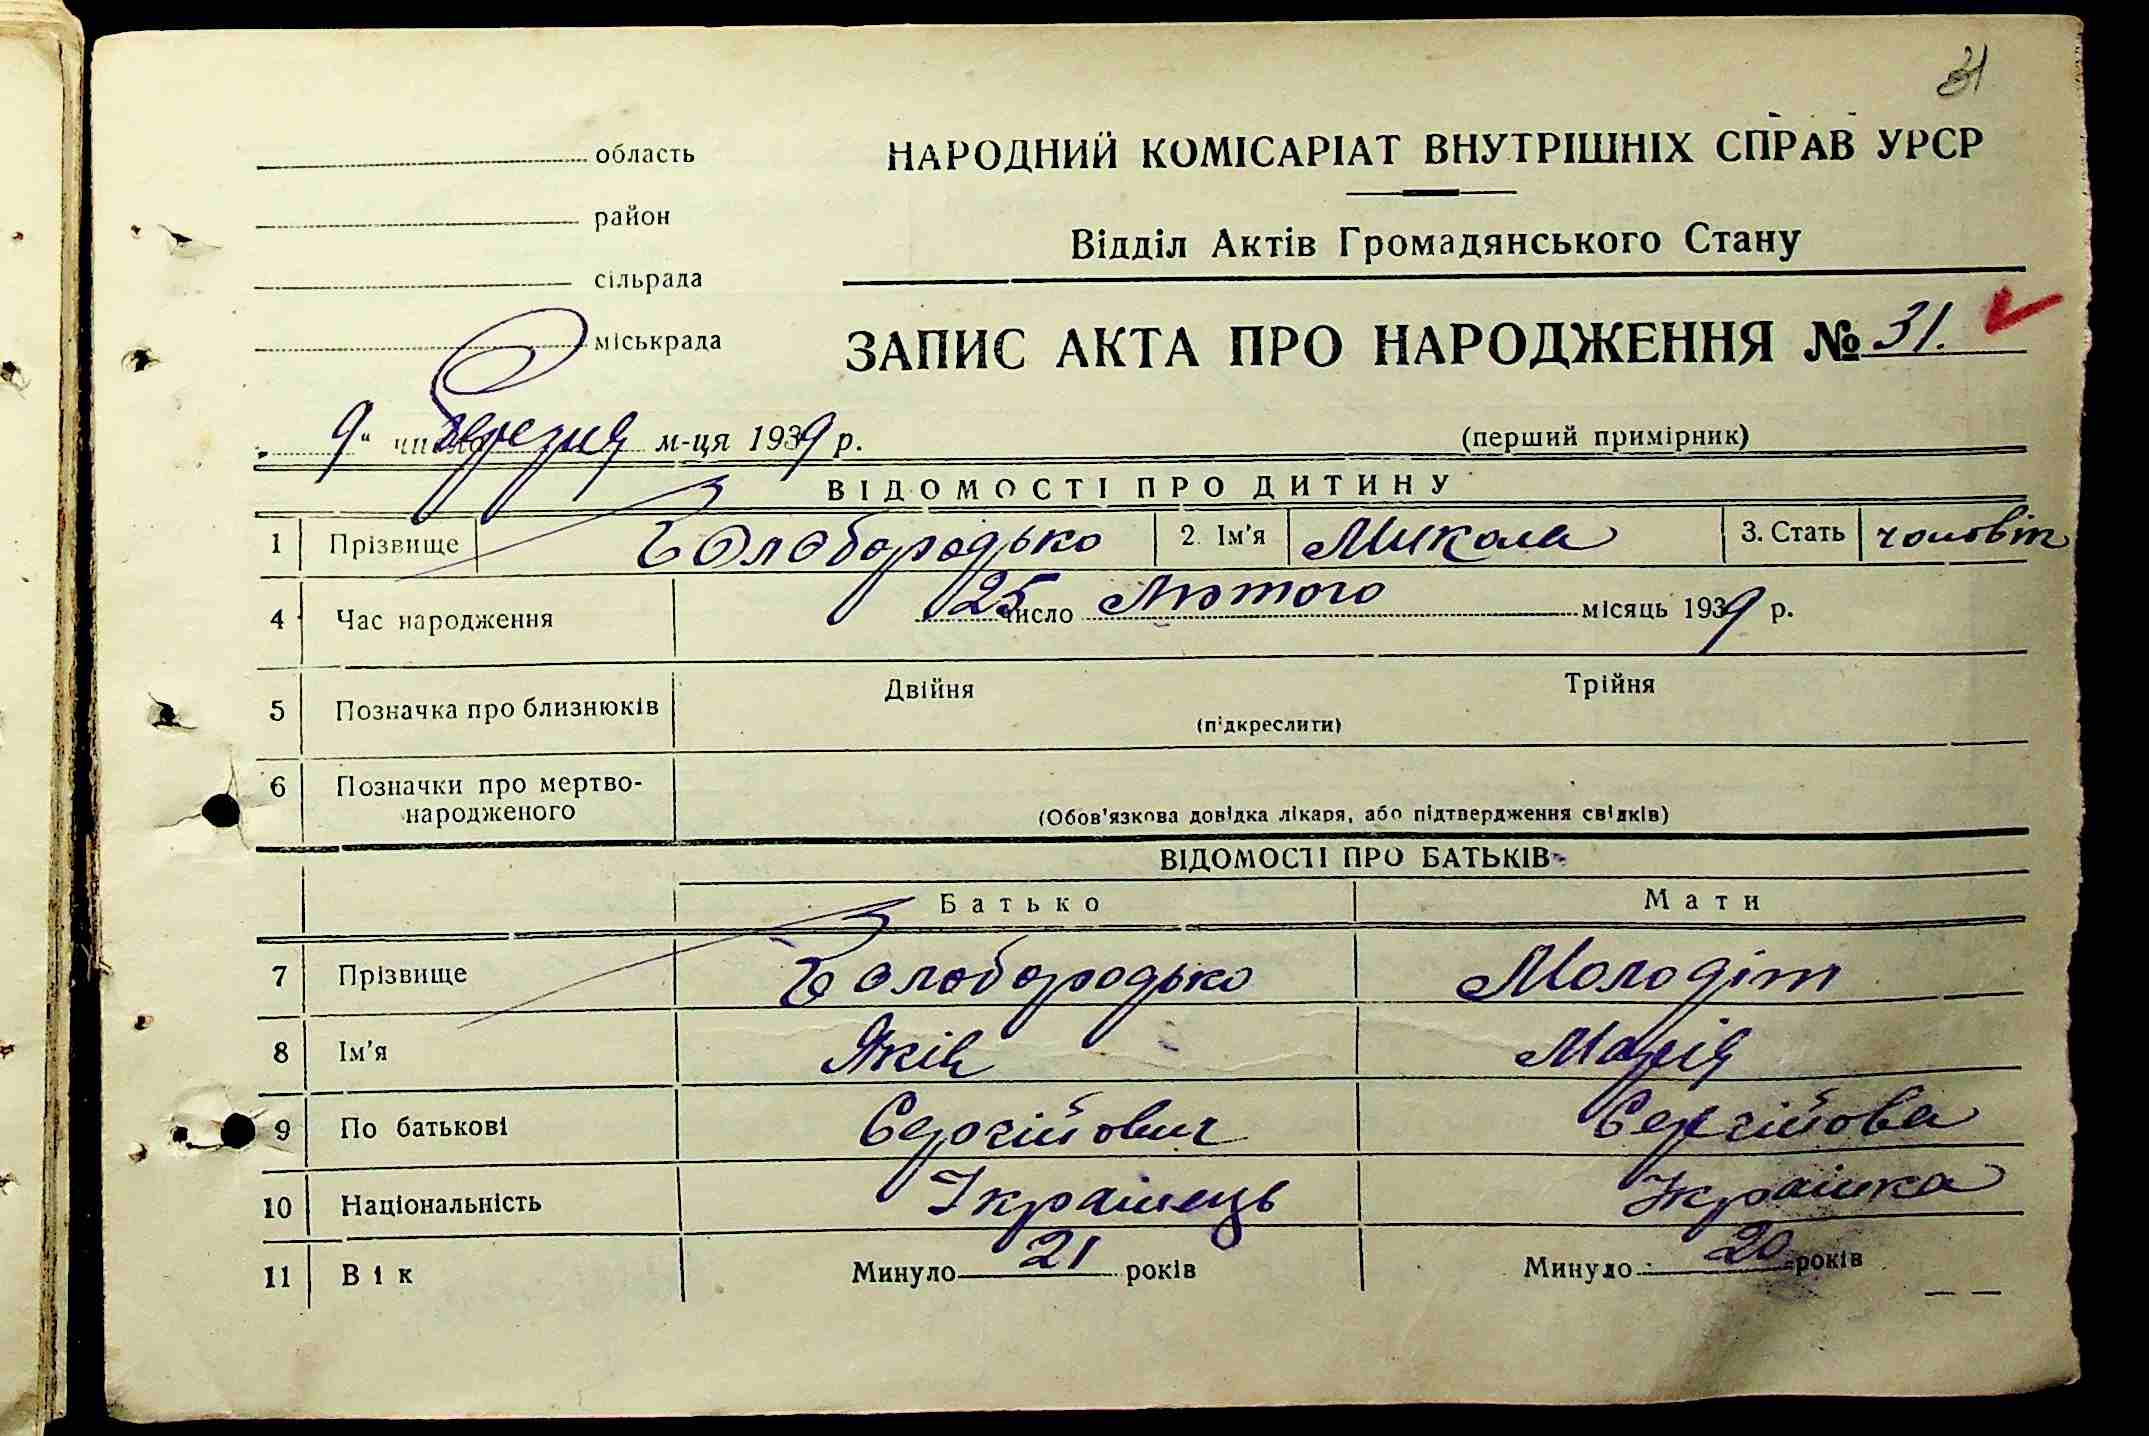 31
область
район
сільрада
міськрада
НАРОДНИЙ КОМІСАРІАТ ВНУТРІШНІХ СПРАВ УРСР
Відділ Актів Громадянського Стану
ЗАПИС АКТА ПРО НАРОДЖЕННЯ № 31.
9 " число березня м-ця 1939 р.
(перший примірник)
ВІДОМОСТІ ПРО ДИТИНУ
1 Прізвище Білобородько 2. Ім'я Микола 3. Стать чоловіч
4 Час народження 25 число Лютого місяць 1939 р.
5 Позначка про близнюків Двійня Трійня
(підкреслити)
6 Позначки про мертво-
народженого
(Обов'язкова довідка лікаря, або підтвердження свідків)
ВІДОМОСТІ ПРО БАТЬКІВ
Батько Мати
7 Прізвище Білобородько Молодіт
8 Ім'я Яків Марія
9 По батькові Сергійович Сергійова
10 Національність Українець Українка
11 Вік Минуло 21 років Минуло 20 років